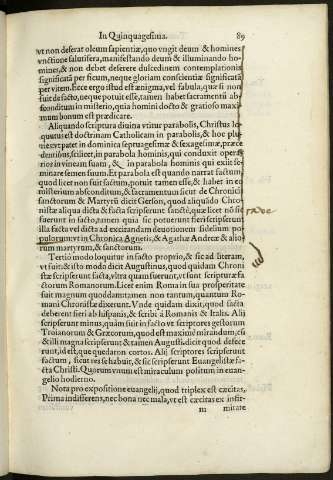 In Quinquagesima. 89
vt non deserat oleum sapientiæ, quo vngit deum & homines
vnctione salutifera, manifestando deum & illuminando ho-
mines, & non debet deserere dulcedinem contemplationis
significatã per ficum, neque gloriam conscientiæ significatã
per vitem. Ecce ergo istud est ænigma, vel fabula, quæ si non
fuit de facto, neque potuit esse, tamen habet sacramentũ ab-
sconditum in misterio, quia homini docto & gratioso maxi-
mum bonum est prædicare.
Aliquando scriptura diuina vtitur parabolis, Christus lo-
quutus est doctrinam Catholicam in parabolis, & hoc plu-
ries vt patet in dominica septuagesimæ & sexagesimæ, præce
dentibus, scilicet, in parabola hominis, qui conduxit opera-
rios in vineam suam, & in parabola hominis qui exit se-
minare semen suum. Et parabola est quando narrat factum,
quod licet non fuit factum, potuit tamen esse, & habet in eo
misterium absconditum, & sacramentum sicut de Chronicis
sanctorum & Martyrũ dicit Gerson, quod aliquãdo Chro
nistæ aliqua dicta & facta scripserunt sanctẽ, quæ licet nõ sic
fuerunt in facto, tamen quia sic potuerunt fieri scripserunt
illa facta vel dicta ad excitandam deuotionem fidelium po
pulorum, vt in Chronica Agnetis, & Agathæ Andreæ & alio-
rum martyrum, & sanctorum.
Tertio modo loquitur in facto proprio, & sic ad literam,
vt fuit, & isto modo dicit Augustinus, quod quidam Chroni
stæ scripserunt facta, vltra quam fuerunt, vt sunt scripturæ fa
ctorum Romanorum. Licet enim Roma in sua prosperitate
fuit magnum quoddam tamen non tantum, quantum Ro-
mani Chronistæ dixerunt. Vnde quidam dixit, quod facta
deberent fieri ab hispanis, & scribi à Romanis & Italis. Alij
scripserunt minus, quàm sint in facto vt scriptores gestorum
Troianorum & Græcorum, quod est maximè mirandum, cũ
& illi magna scripserunt & tamen Augusti. dicit quod defece
runt, id est, que quedaron cortos. Alij scriptores scripserunt
factum, sicut res se habuit, & sic scripserunt Euangelistæ fa-
cta Christi. Quorum vnum est miraculum positum in euan-
gelio hodierno.
Nota pro expositione euangelij, quod triplex est cæcitas,
Prima indifferens, nec bona nec mala, vt est cæcitas ex infir-
m mitate